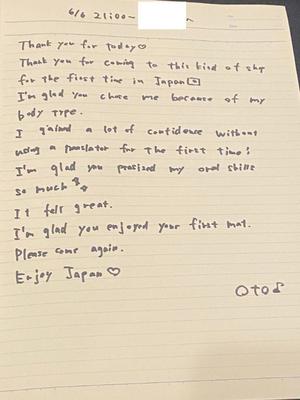 6/6 21:00-
Thank you for today♡
Thank you for coming to this kind of shop
for the first time in Japan
I'm glad you chose me because of my
body type.
I gained a lot of confidence without
using a translator for the first time!
I'm glad you prasized my oral skills
so much
It felt great.
I'm glad you enjoyed your first mat.
Please come again.
Enjoy Japan♡